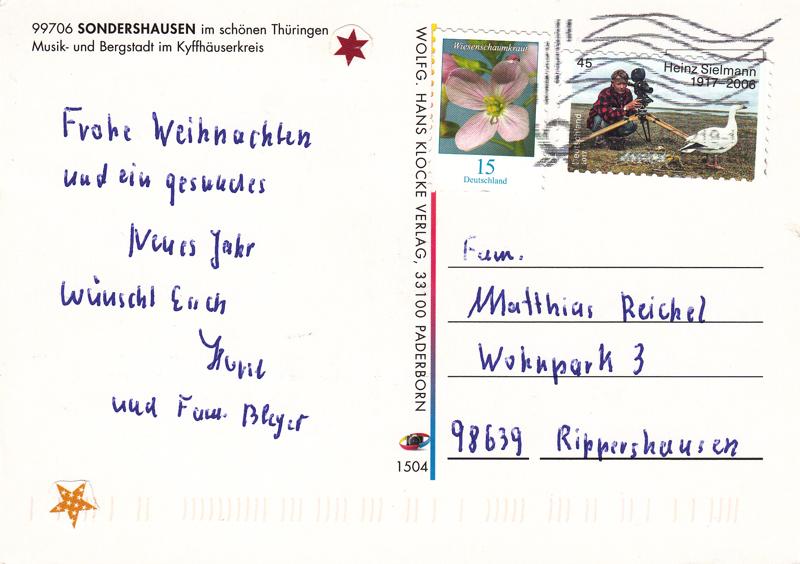 99706 SONDERSHAUSEN im schönen Thüringen
Musik- und Bergstadt im Kyffhäuserkreis
Frohe Weihnachten
und ein gesundes
Neues Jahr
wünscht Euch
Horst
und Fam. Bleyer
WOLFG. HANS KLOCKE VERLAG, 33100 PADERBORN
1504
Wiesenschaumkraut
15
Deutschland
45
Heinz Sielmann
1917-2006
Deutschland
2017
Fam.
Matthias Reichel
Wohnpark 3
98639 Rippershausen